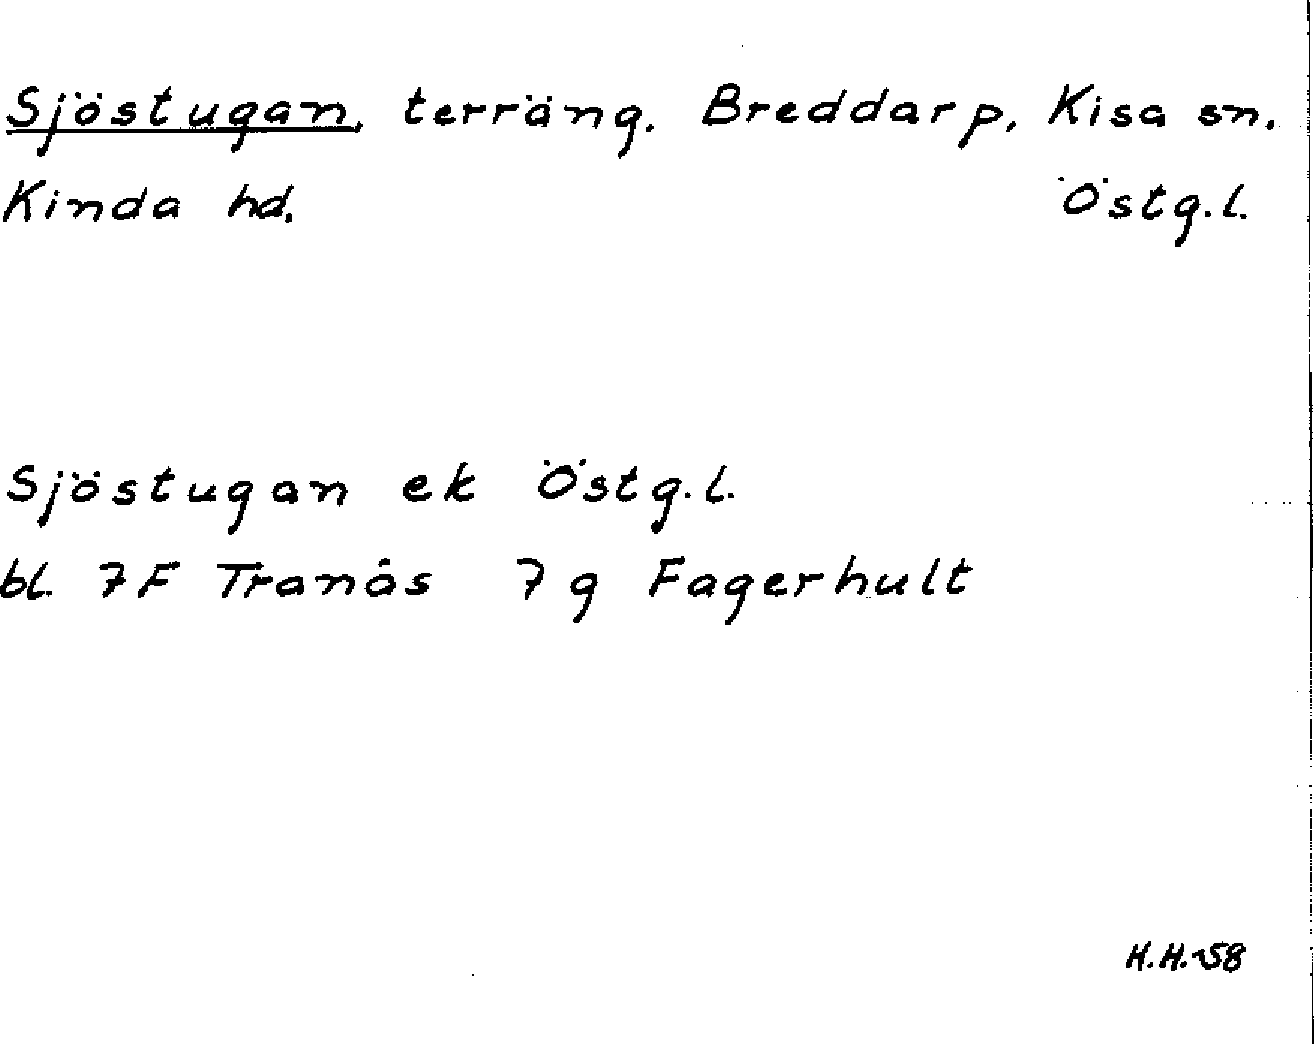 Sjöstugan, terräng. Breddarp, Kisa sn.
Kinda hd. Östg.l.
Sjöstugan ek Östg.l.
bl. 7F Tranås 7g Fagerhult
H.H.-58